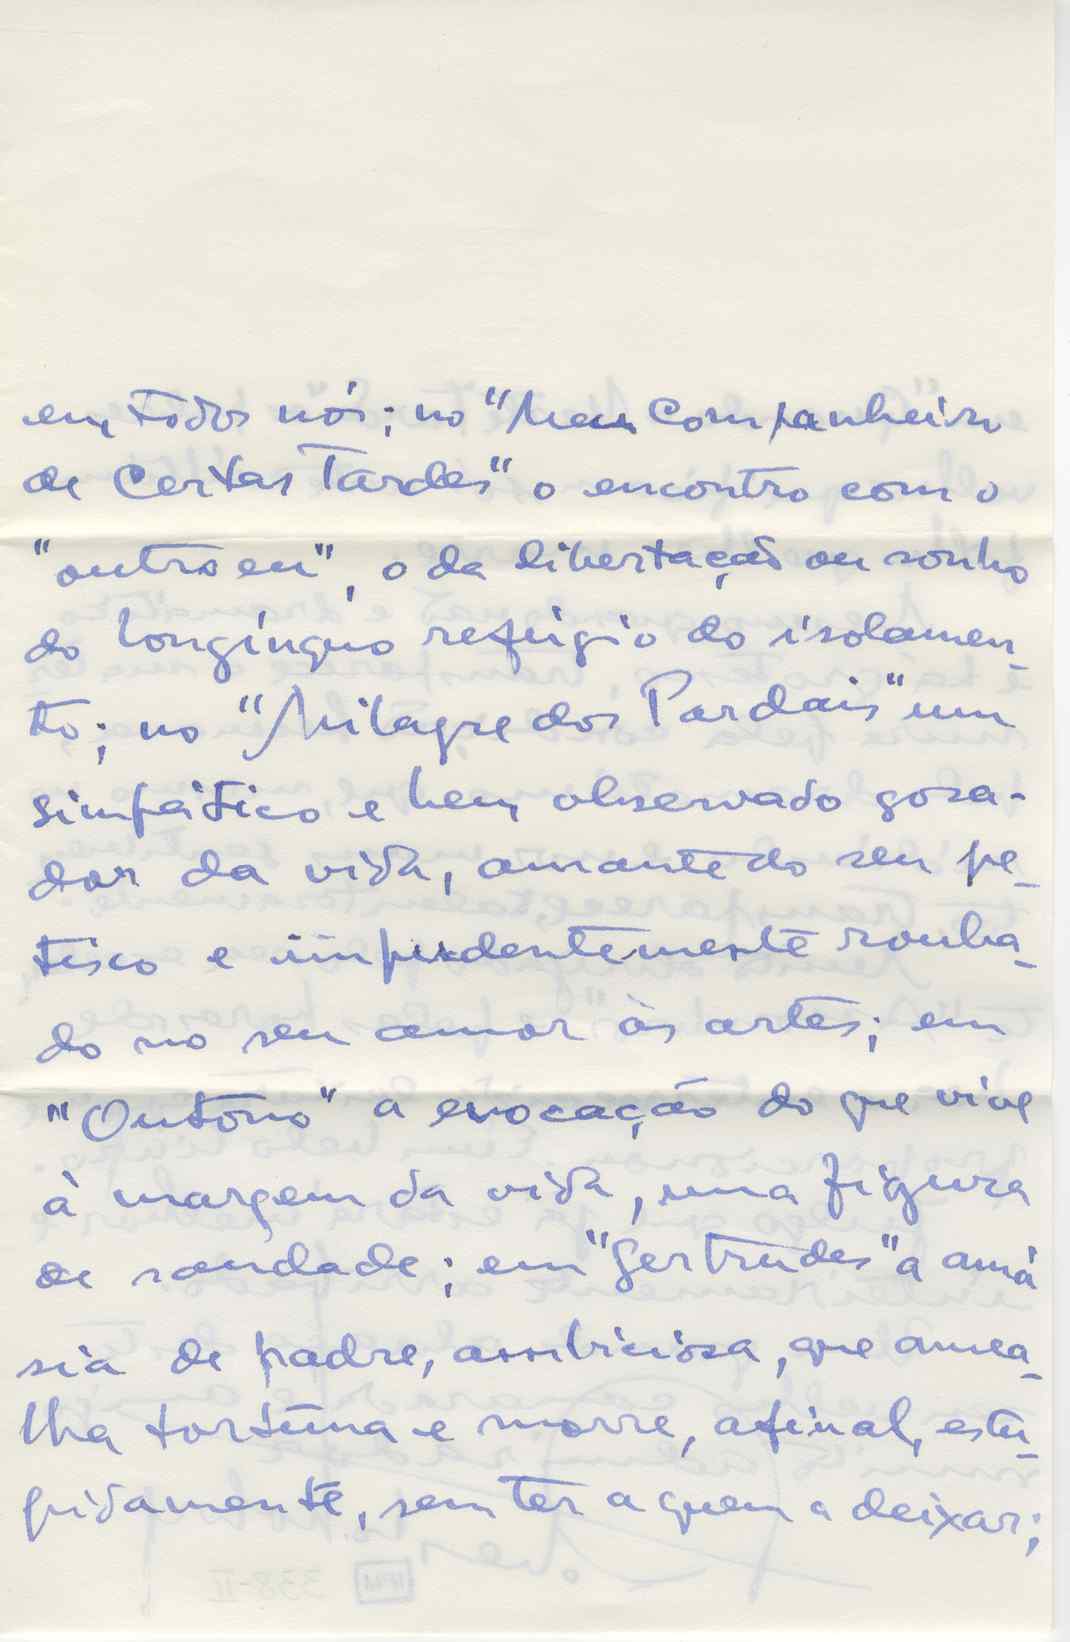 em todos nós; no "Meu Companheiro
de Certas Tardes" o encontro com o
"outro eu", o da libertação ou sonho
do longínquo refúgio do isolamen-
to; no "Milagre dos Pardais" um
simpático e bem observado gosa-
dor da vida, amante do seu pe-
tisco e impudentemente rouba-
do no seu amor às artes; em
"Outono" a evocação do que vive
à margem da vida, uma figura
de saudade; em "Gertrudes" a amá
sia de padre, ambiciosa, que amea-
lha fortuna e morre, afinal, estu-
pidamente, sem ter a quem a deixar;